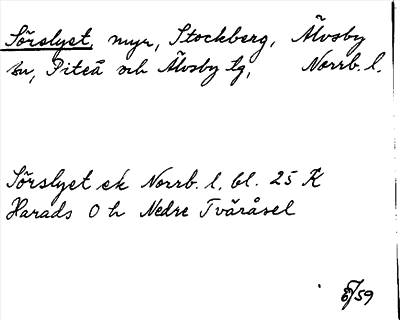 Sörslyet, myr, Stockberg, Älvsby
sn, Piteå och Älvsby tg, Norrb. l.
Sörslyet ek Norrb. l. bl. 25 K
Harads O h Nedre Tvåråsel
59